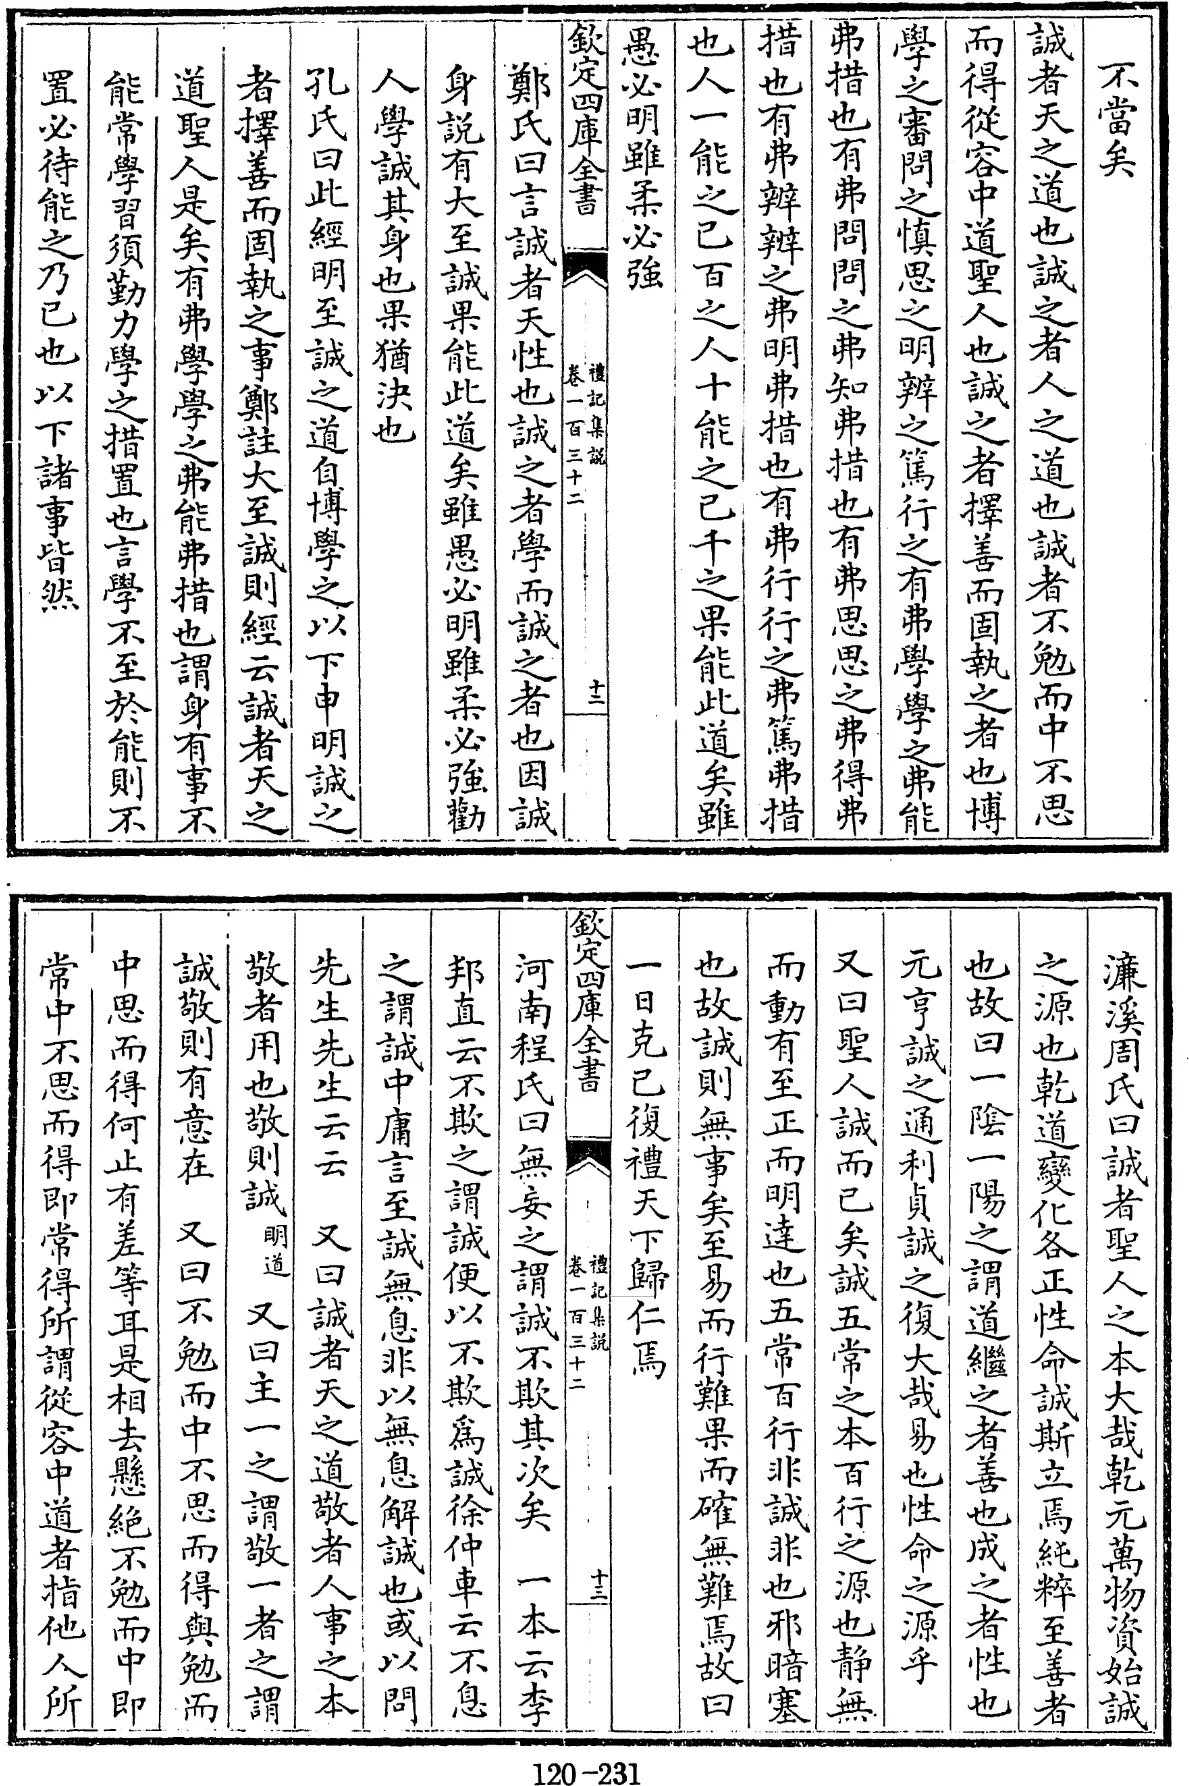 不當矣
誠者天之道也誠之者人之道也誠者不勉而中不思
而得從容中道聖人也誠之者擇善而固執之者也博
學之審問之慎思之明辨之篤行之有弗學學之弗能
弗措也有弗問問之弗知弗措也有弗思思之弗得弗
措也有弗辨辨之弗明弗措也有弗行行之弗篤弗措
也人一能之已百之人十能之已千之果能此道矣雖
愚必明雖柔必強
欽定四庫全書
禮記集說
卷一百三十二
十二
鄭氏曰言誠者天性也誠之者學而誠之者也因誠
身説有大至誠果能此道矣雖愚必明雖柔必強勸
人學誠其身也果猶決也
孔氏曰此經明至誠之道自博學之以下申明誠之
者擇善而固執之事鄭註大至誠則經云誠者天之
道聖人是矣有弗學學之弗能弗措也謂身有事不
能常學習須勤力學之措置也言學不至於能則不
置必待能之乃已也以下諸事皆然
濂溪周氏曰誠者聖人之本大哉乾元萬物資始誠
之源也乾道變化各正性命誠斯立焉純粹至善者
也故曰一陰一陽之謂道繼之者善也成之者性也
元亨誠之通利貞誠之復大哉易也性命之源乎
又曰聖人誠而已矣誠五常之本百行之源也靜無
而動有至正而明達也五常百行非誠非也邪暗塞
也故誠則無事矣至易而行難果而確無難焉故曰
一日克已復禮天下歸仁焉
欽定四庫全書
禮記集説
卷一百三十二
十三
河南程氏曰無妄之謂誠不欺其次矣　一本云李
邦直云不欺之謂誠便以不欺為誠徐仲車云不息
之謂誠中庸言至誠無息非以無息解誠也或以問
先生先生云云　又曰誠者天之道敬者人事之本
敬者用也敬則誠明道　又曰主一之謂敬一者之謂
誠敬則有意在　又曰不勉而中不思而得與勉而
中思而得何止有差等耳是相去懸絶不勉而中即
常中不思而得即常得所謂從容中道者指他人所
120-231